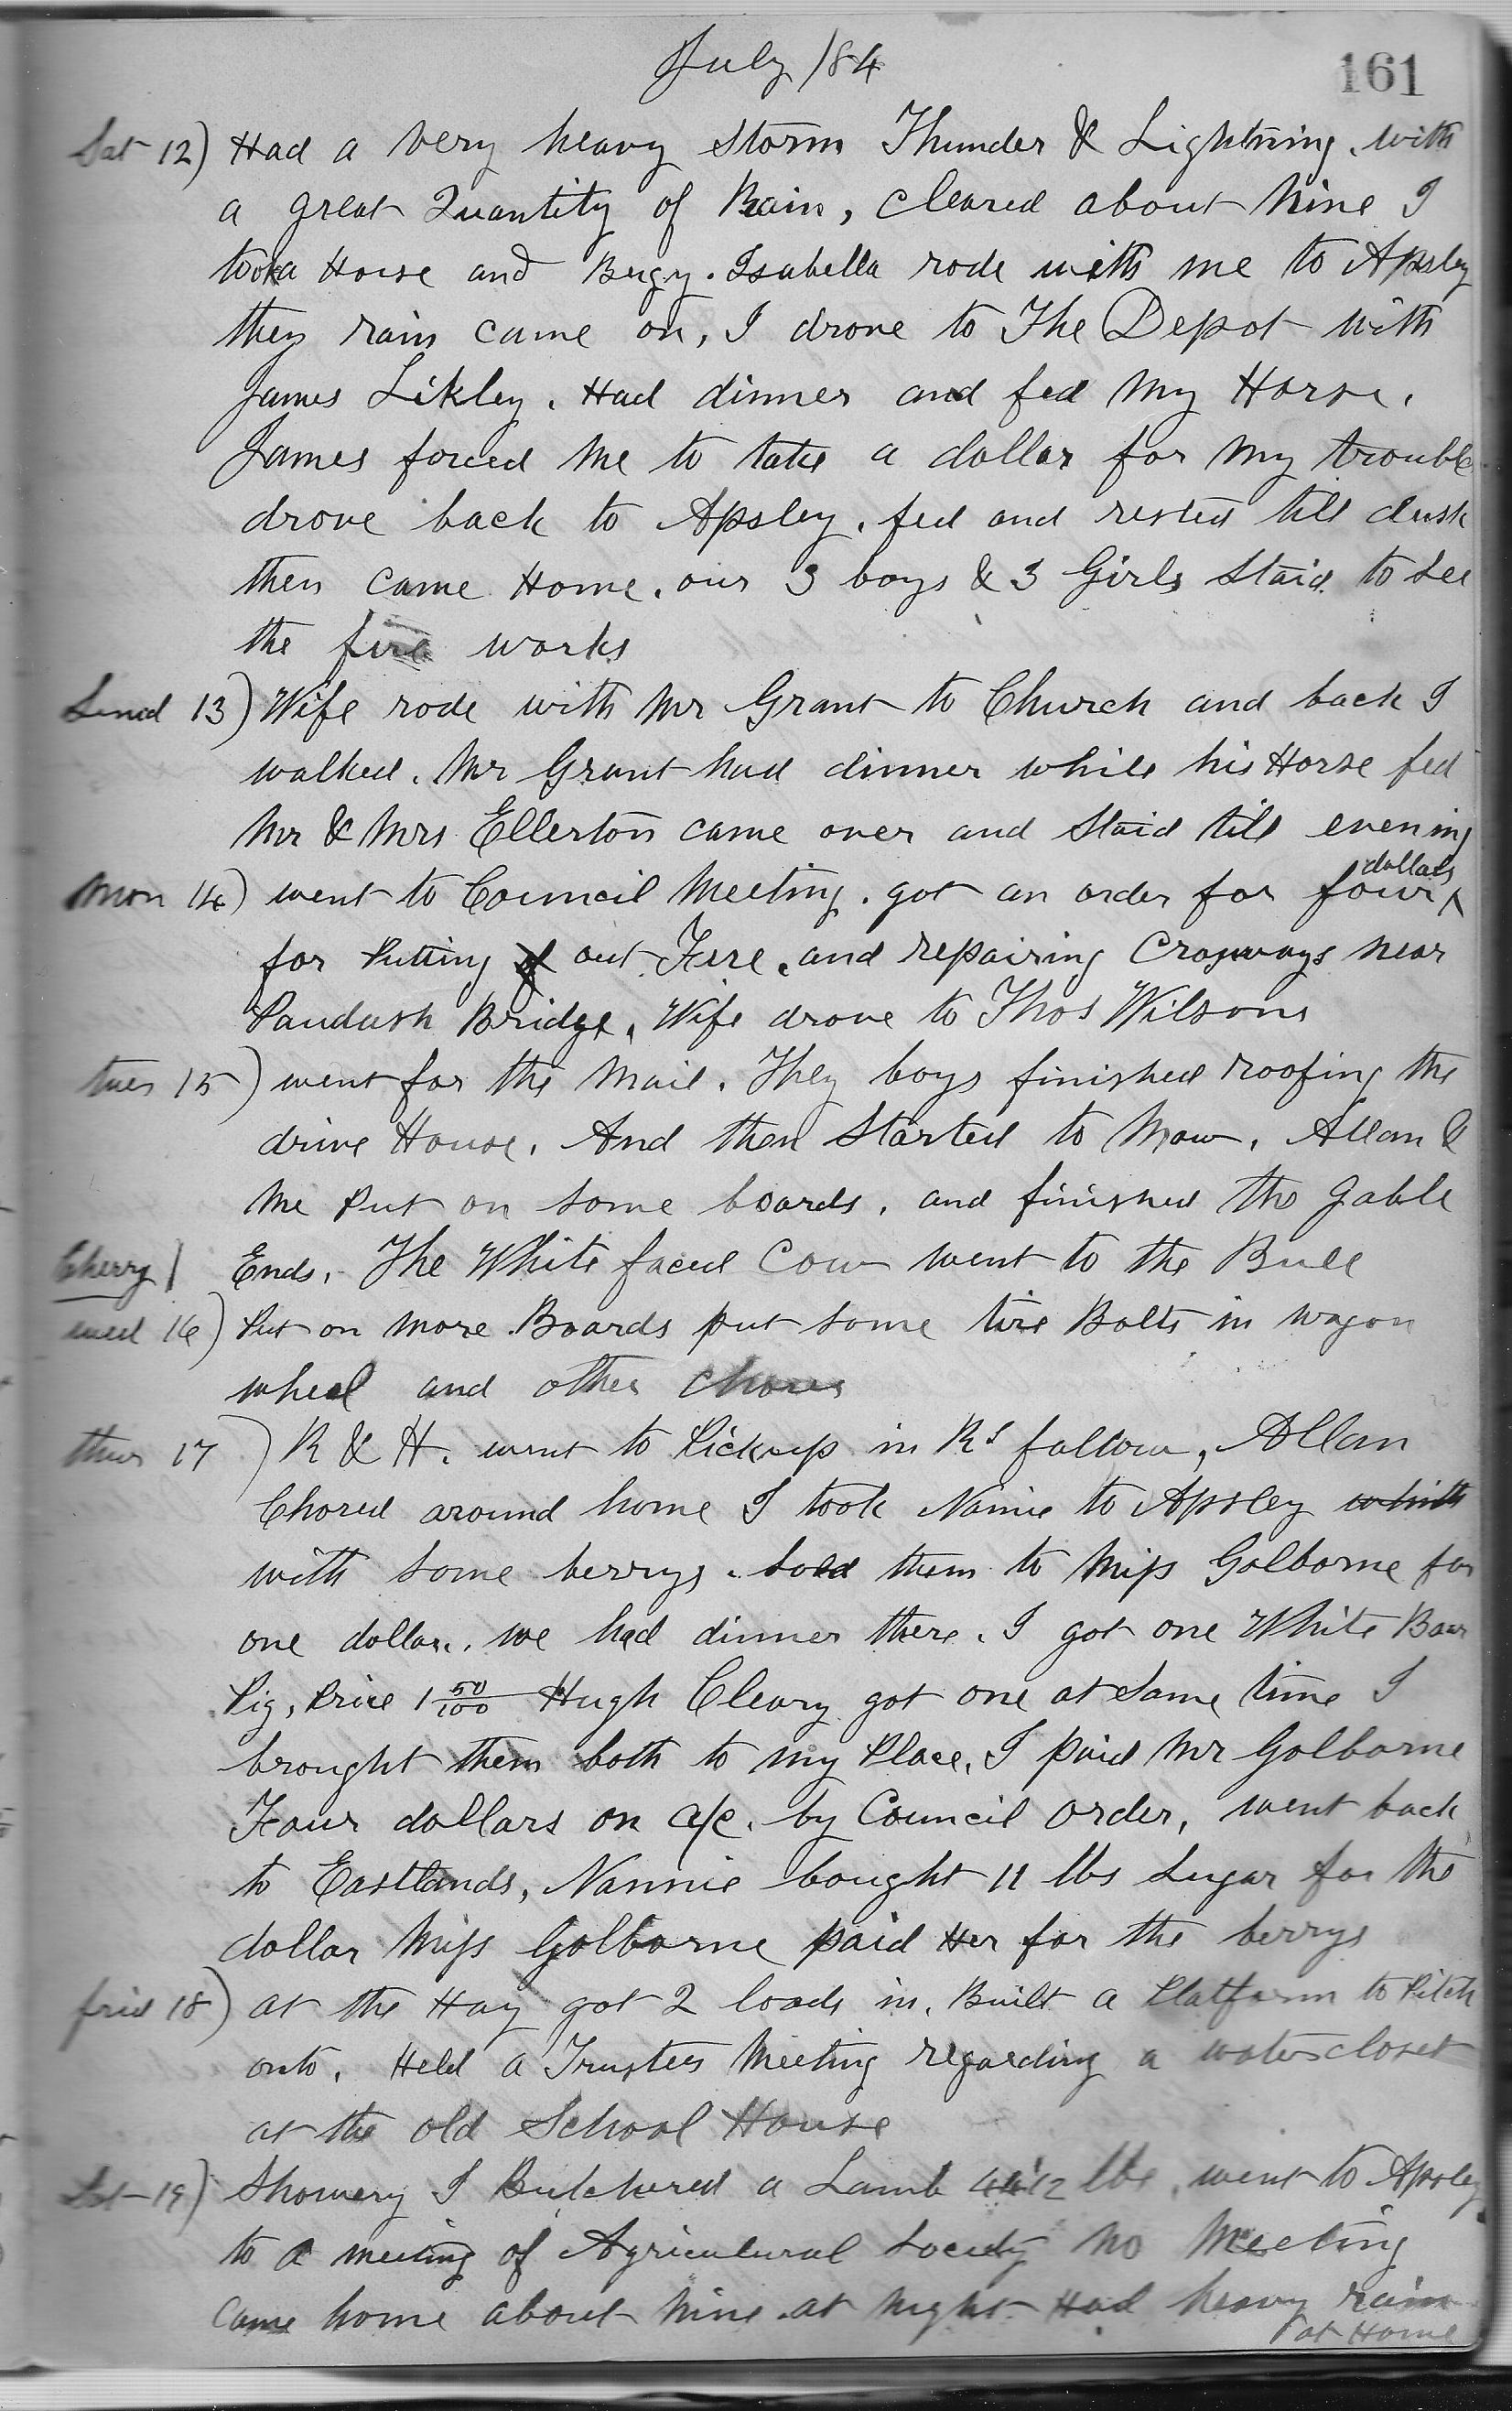 July /84
161
Sat 12) Had a very heavy Storm Thunder & Lightning. with
a great Quantity of Rain, cleared about Nine I
took a Horse and Bugy. Isabella rode with me to Apsley
they rain came on, I drove to The Depot with
James Likley. Had dinner and fed my Horse.
James forced me to take a dollar for my trouble
drove back to Apsley. fed and rested till dusk
then came Home. our 3 boys & 3 Girls Staid to see
the fire works
Sund 13) Wife rode with Mr Grant to Church and back I
walked. Mr Grant had dinner while his Horse fed
Mr & Mrs Ellerton came over and Staid till evening
Mon 14) went to Council Meeting. got an order for four dollars
for Putting out Fire. and repairing Crosways near
Paudash Bridge. Wife drove to Thos Wilsons
tues 15) went for the Mail. They boys finished roofing the
drive House. And then Started to Mow. Allan &
Me Put on some boards. and finished the gable
Cherry / Ends. The White faced Cow went to the Bull
wed 16) Put on more Boards put some tire Bolts in wagon
wheel and other chores
thur 17) R & H. went to Pickup in Rs fallow, Allan
Chored around home I took Nannie to Apsley whith
with some berrys. sold them to Miss Golborne for
one dollar. we had dinner there. I got one White Boar
Pig, Price 1 50/100 Hugh Cleary got one at same time I
brought them both to my Place. I paid Mr Golborne
Four dollars on a/c. by Council order, went back
to Eastlands, Nannie bought 11 lbs Sugar for the
dollar Miss Golborne paid Her for the berrys
frid 18) at the Hay got 2 loads in. Built a Platform to Pitch
onto. Held a Trustees Meeting regarding a watercloset
at the old School House
Sat 19) Showery I Butchered a Lamb 12 lbs. went to Apsley
to a meeting of Agricultural Society No Meeting
Came home about Nine at night Had heavy rain
at Home